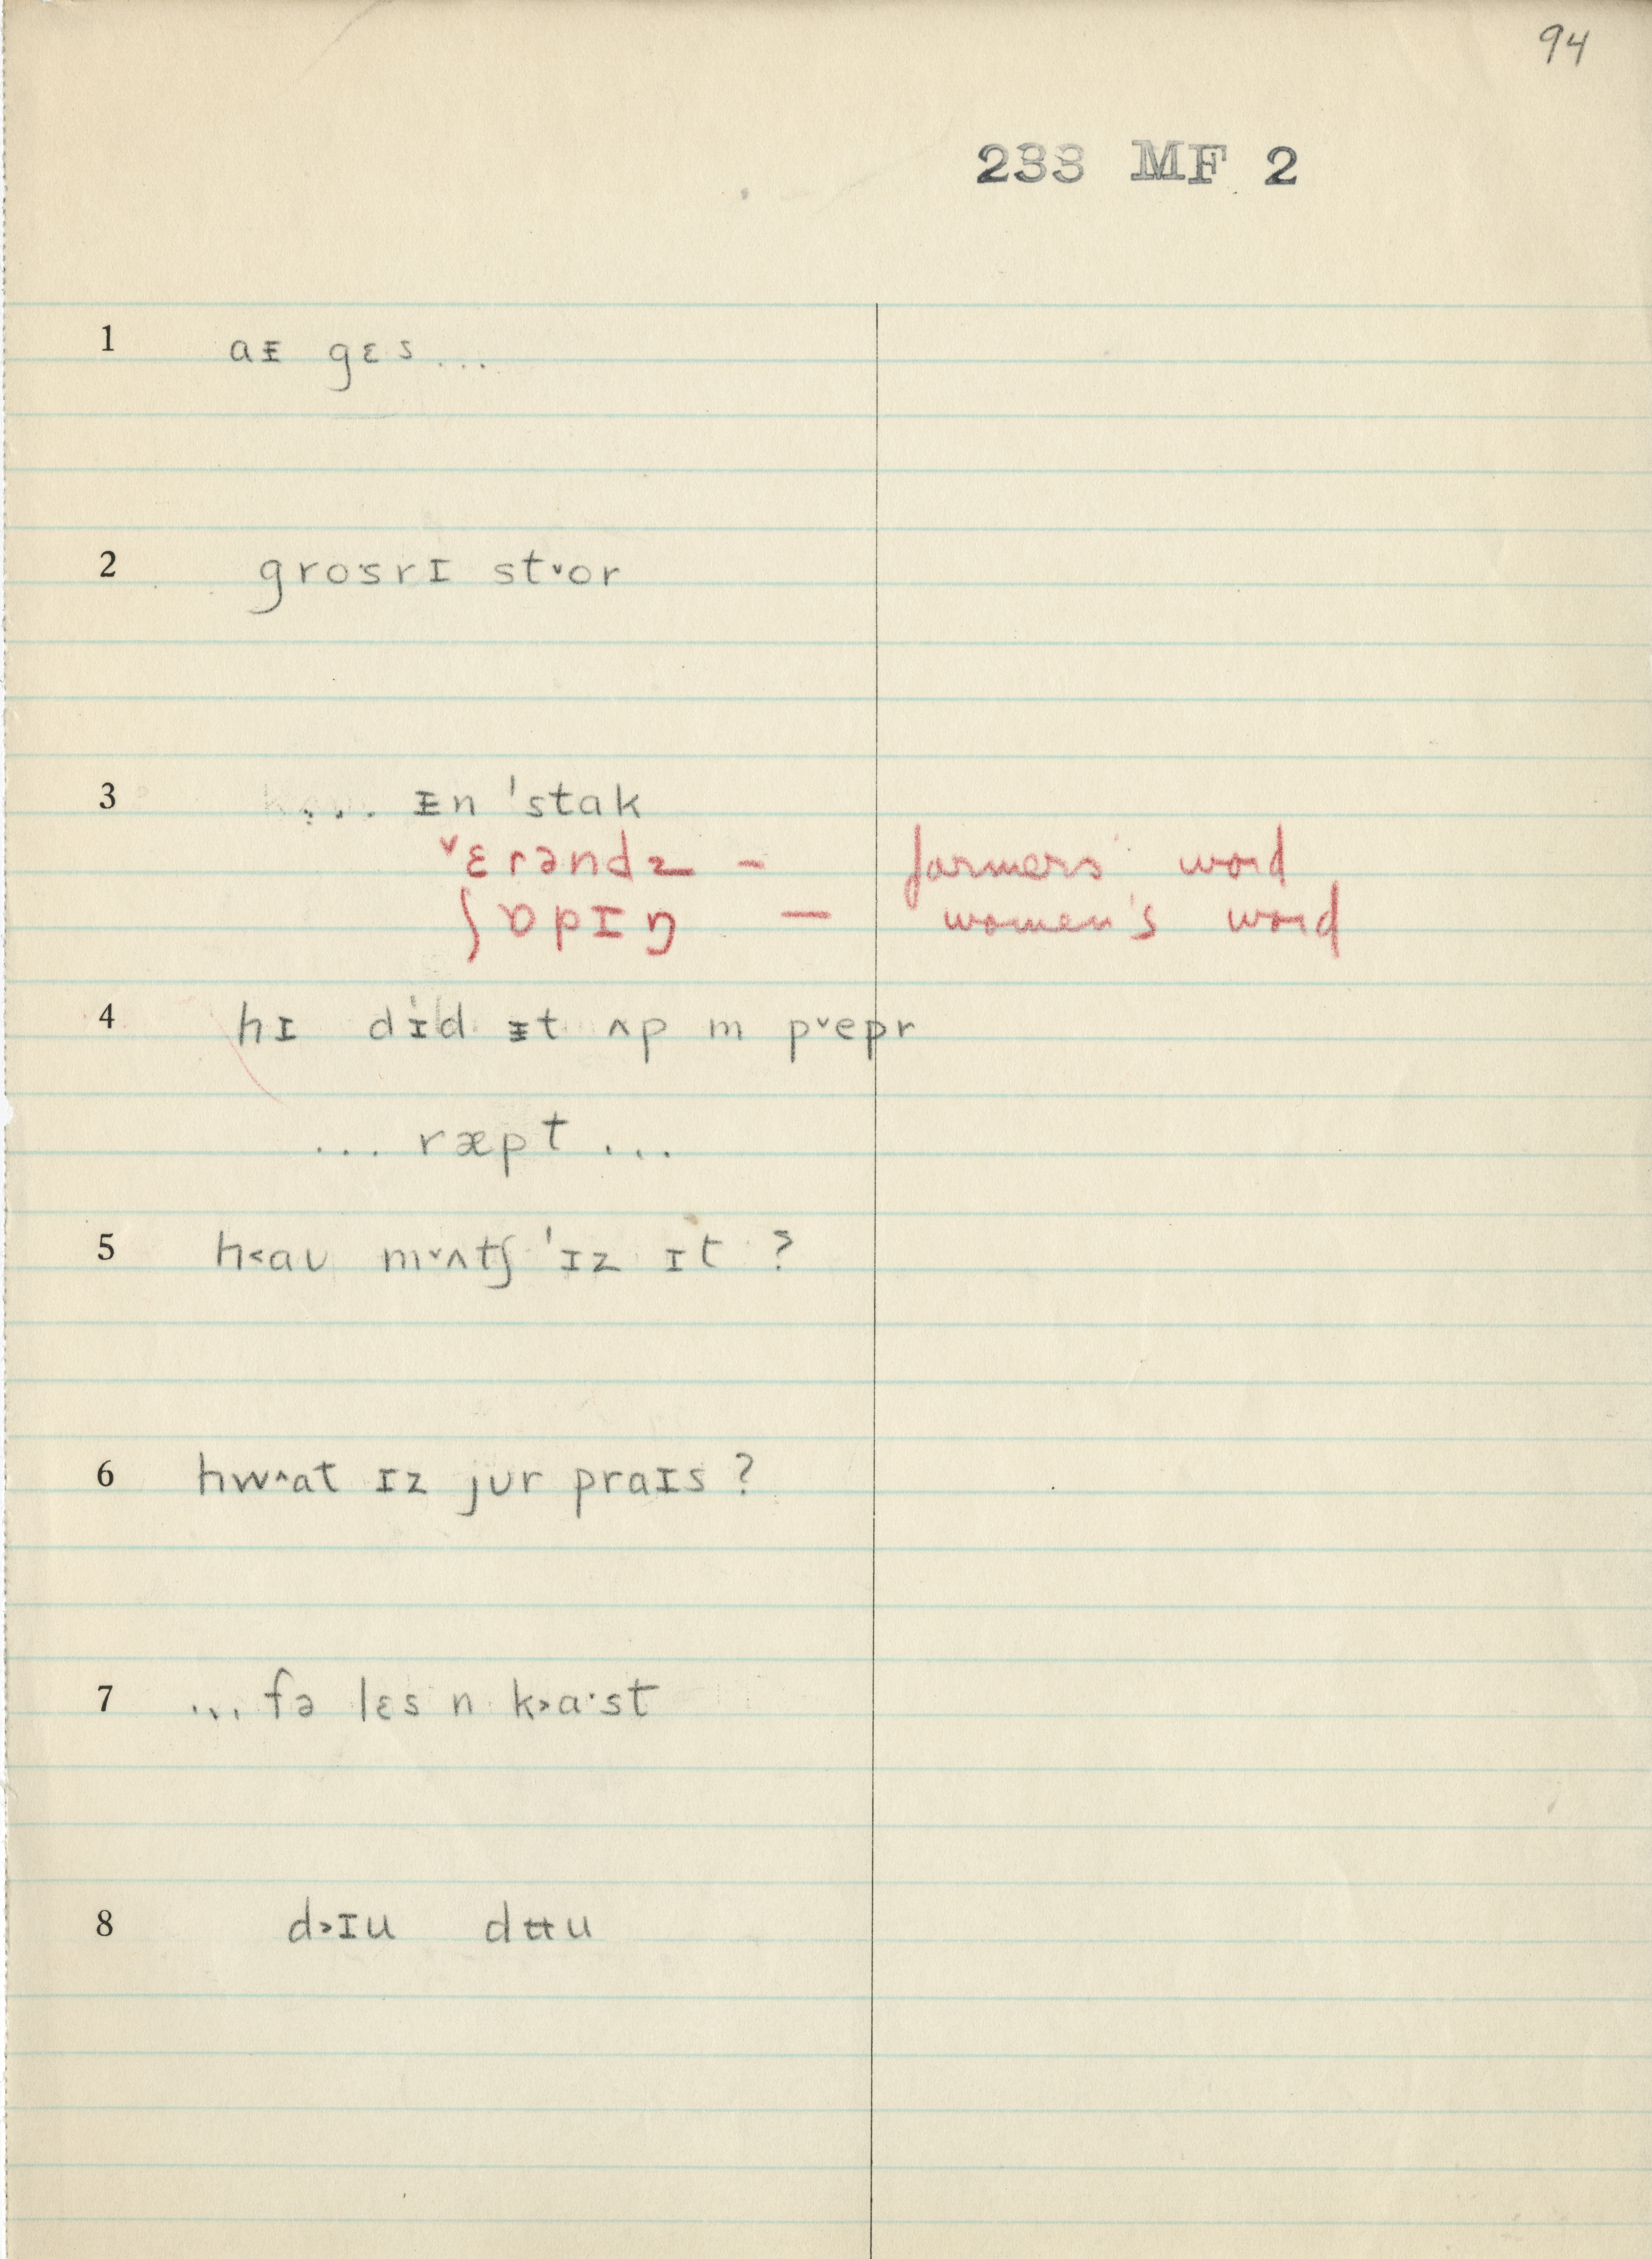 94
233 MF 2
1 aᵻ gɛs...
2 grosrɪ st˅or
3 ... ᵻn ˈstak
˅ɛrəndz – farmers' word
ʃɒpɪŋ – women's word
4 hɪ dɪd ᵻt ʌp m p˅epr
... ræpt ...
5 h˂aʊ m˅ʌtʃ ˈɪz ɪt ?
6 hw˄at ɪz jʊr praɪs ?
7 ... fə lɛs n k˃a·st
8 d˃ɪu dʉu